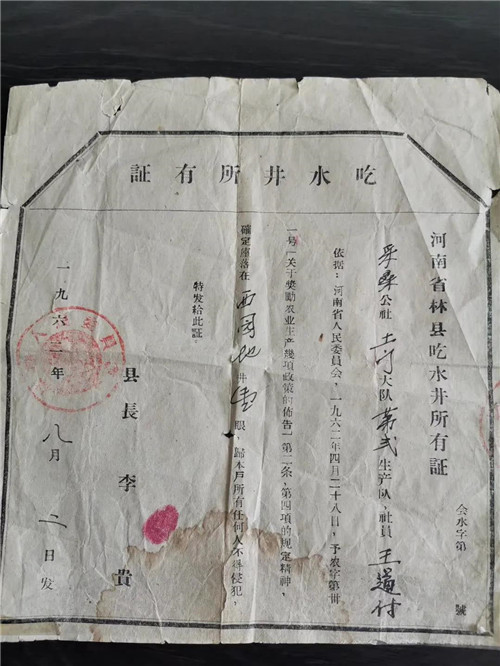 吃水井所有証
会水字第 號
河南省林县吃水井所有証
采桑公社 大队第弍生产队，社員 王道付
依据：河南省人民委員会，一九六二年四月二十八日，予农字第卅
一号「关于獎励农业生产幾項政策的佈告」第二条，第四項的規定精神，
確定座落在 西园地 井 壹 眼，歸本戶所有任何人不得侵犯，
特发給此証
县長 李貴
一九六二年 八月 二日发